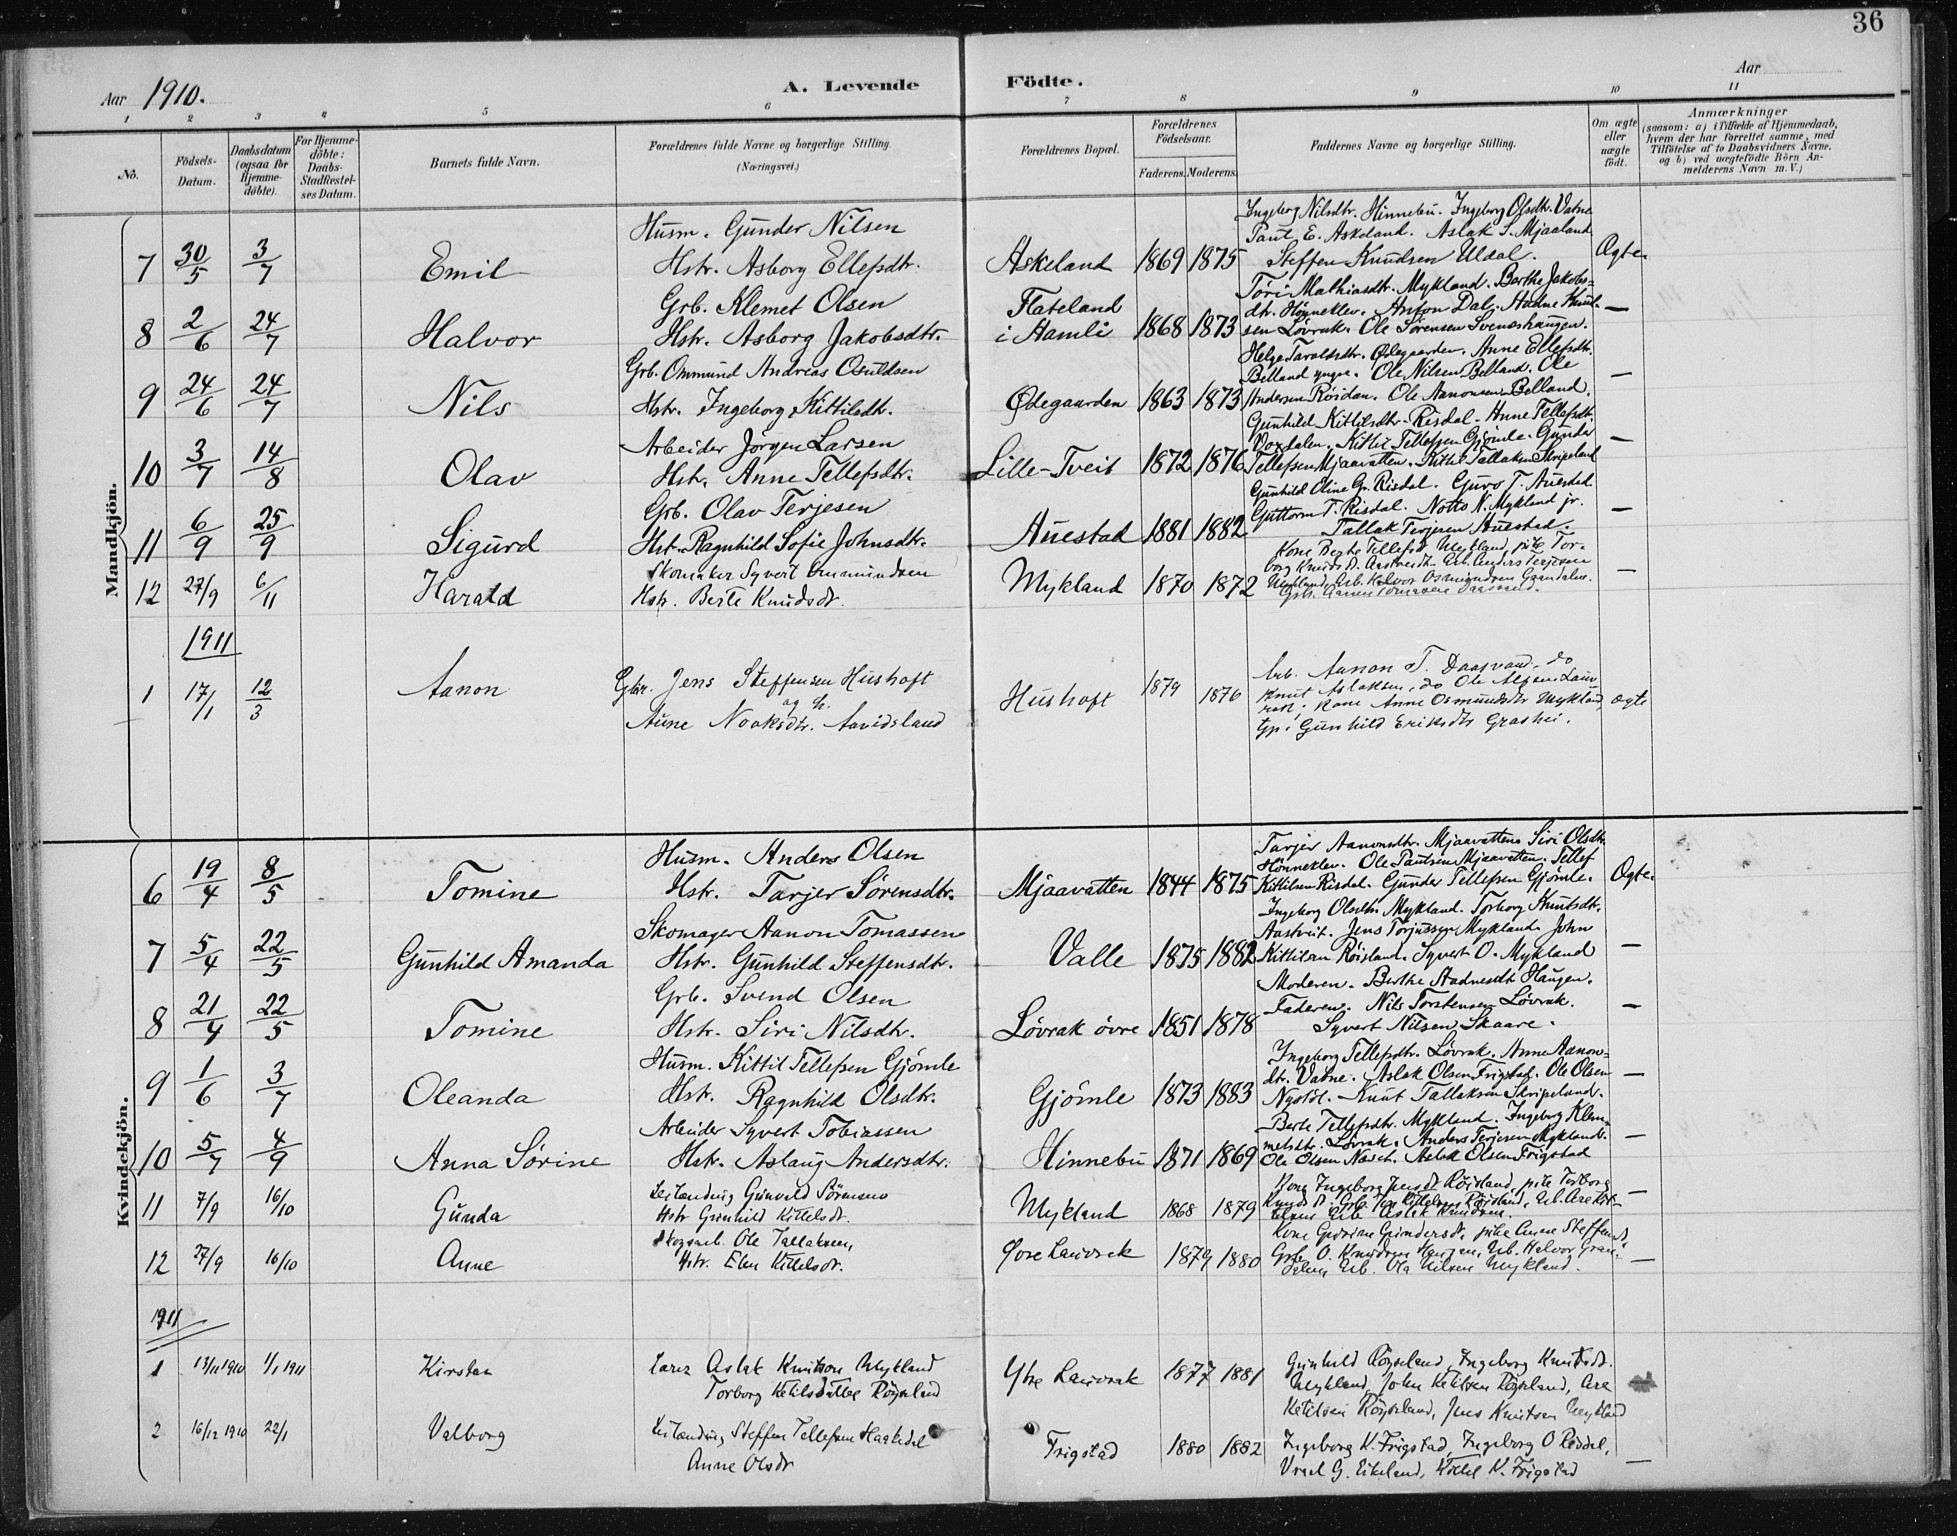 36
Aar 1910.
A. Levende Födte.
Aar
1 2 3 4 5 6 7 8 9 10 11
No.
Födsels-Datum.
Daabsdatum (ogsaa for Hjemme-döbte).
For Hjemme-döbte: Daabs-Stadfestel-ses Datum.
Barnets fulde Navn.
Forældrenes fulde Navne og borgerlige Stilling. (Næringsvei.)
Forældrenes Bopæl.
Forældrenes Födselsaar.
Faderens. Moderens.
Faddernes Navne og borgerlige Stilling.
Om ægte eller uægte födt.
Anmærkninger
(saasom: a) i Tilfælde af Hjemmedaab, hvem der har forrettet samme, med Tilföielse af to Daabsvidners Navne, og b) ved uægtefödte Börn An-melderens Navn m. V.)
Mandkjön.
Husm. Gunder Nilsen
Ingeborg Nilsdtr. Hinnebu. Ingeborg Olsdtr. Vatne
Paul E. Askeland. Aslak S. Mjaaland
7 30/5 3/7 Emil Hstr. Asborg Ellefsdtr. Askeland 1869 1875 Steffen Knudsen Uldal. Ægte.
Grb. Klemet Olsen Flateland
Töri Mathiasdtr. Mykland. Berthe Jakobs-
dtr. Hönneklev. Anton Dal. Aadne Knud-
8 2/6 24/7 Halvor Hstr. Asborg Jakobsdtr. i Hamli 1868 1873 sen Lövrak. Ole Sörensen Svenæshaugen. —
Grb. Ommund Andreas Osuldsen
Helge Taraldsdtr. Ødegaarden. Anne Ellefsdtr.
Belland yngre. Ole Nilsen Belland. Ole
9 24/6 24/7 Nils Hstr. Ingeborg Kittilsdtr. Ødegaarden 1863 1873 Andersen Röisdan. Ole Aanonsen Belland. —
Arbeider Jörgen Larsen
Gunhild Kittilsdtr. Risdal. Anne Tellefsdtr.
Vordalen. Kittil Tellefsen Gjömle. Gunder
10 3/7 14/8 Olav Hstr. Anne Tellefsdtr. Lille-Tveit 1872 1876 Tellefsen Mjaavatten. Kittil Tallaksen Skripeland —
Grb. Olav Terjesen
Gunhild Oline Gr. Risdal. Guro T. Auestad
Guttorm T. Risdal. Notto N. Mykland jr.
11 6/9 25/9 Sigurd Hst. Ragnhild Sofie Johnsdtr. Auestad 1881 1882 Tallak Terjesen Auestad. —
Skomaker Syvert Ommundsen
Kone Berte Tellefsd. Mykland, pike Tor-
borg Knuds D. Aastveidt. Arb. Anders Terjesen
12 27/9 6/11 Harald Hstr. Berte Knudsdr. Mykland 1870 1872 Mykland, Arb. Halvor Osmundsen Graadalen. —
1911
1 17/11 12/3 Aanon Gbr. Jens Steffensen Hushoft
og h.
Aune Noaksdtr. Aavidsland
Hushoft 1879 1876
Arb. Aanon T. Daasvand. do
Knut Aslaksen, do Ole
Kone Anne Osmundsdtr Mykland, ægte
Gunhild Eriksdtr Grashei.
Kvindekjön.
Husm. Anders Olsen
Tarjer Aanonsdtr. Mjaavatten. Siri Olsdtr.
Hönneklev. Ole Paulsen Mjaavatten. Tellef
6 19/4 8/5 Tomine Hstr. Tarjer Sörensdtr. Mjaavatten 1844 1875 Kittilsen Risdal. Gunder Tellefsen Gjömle. Ægte.
Skomager Aanon Tomassen
Ingeborg Olsdtr. Mykland. Torborg Knutsdtr.
Aastveit. Jens Torjussen Mykland. John
7 5/4 22/5 Gunhild Amanda Hstr. Gunhild Steffensdtr. Valle 1875 1882 Kittilsen Röisland. Syvert O. Mykland —
Grb. Svend Olsen
Moderen. Berthe Stadnesdt Haugen.
Faderen. Nils Torstensen Lövrak.
8 21/4 22/5 Tomine Hstr. Siri Nilsdtr. Lövrak övre 1851 1878 Syvert Nilsen Skaare. —
Husm. Kittil Tellefsen Gjömle
Ingeborg Tellefsdtr. Lövrak. Anne Aanon-
dtr. Vatne. Aslak Olsen Frigstad. Ole Olsen
9 1/6 3/7 Oleanda Hstr. Ragnhild Olsdtr. Gjömle 1873 1883 Nystöl. Knut Tallaksen Skripeland. —
Arbeider Syvert Tobiassen
Berte Tellefsdtr. Mykland. Ingeborg Klem-
metsdtr. Lövrak. Anders Terjesen Mykland.
10 5/7 4/9 Anna Sörine Hstr. Aslaug Andersdtr. Hinnebu 1871 1869 Ole Olsen Næset. Aslak Olsen Frigstad —
Leilænding Gunvald Sörensen
Kone Ingeborg Jensdt. Röisland, pike Torborg
11 7/9 16/10 Gunda Hstr Gunhild Kittelsdr. Mykland 1868 1879 —
Skogsarb. Ole Tallaksen,
Kone Gundersdt., pike Anne Steffensdt.
12 27/9 16/10 Anne Hstr. Elen Kittelsdr. Øvre Lauvrak 1879 1880 Grb. O. Knudsen Haugen, Arb. Halvor Graa-
dalen, Arb. Ola Nilsen Mykland. —
1911
1 13/11 1910 1/1 1911 Kirsten Lærer Aslak Knutson Mykland
Torborg Ketilsdatter Röysland
Ytre Lauvrak 1877 1881
Gunhild Röyseland, Ingeborg Knutsdt.
Mykland, John Ketilsen Röyseland, Are
Ketilsen Röyseland, Jens Knutsen Mykland
2 16/12 1910 22/1 Valborg Leilænding Steffen Tellefsen Haakedal
Anne Olsdr
Frigstad 1880 1882
Ingeborg K. Frigstad, Ingeborg O Risdal,
G. Eikeland, Kittel K. Frigstad —